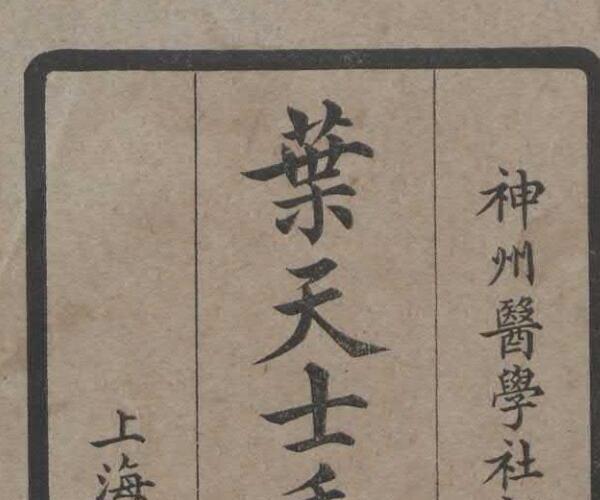 神州醫學社
葉天士
上海